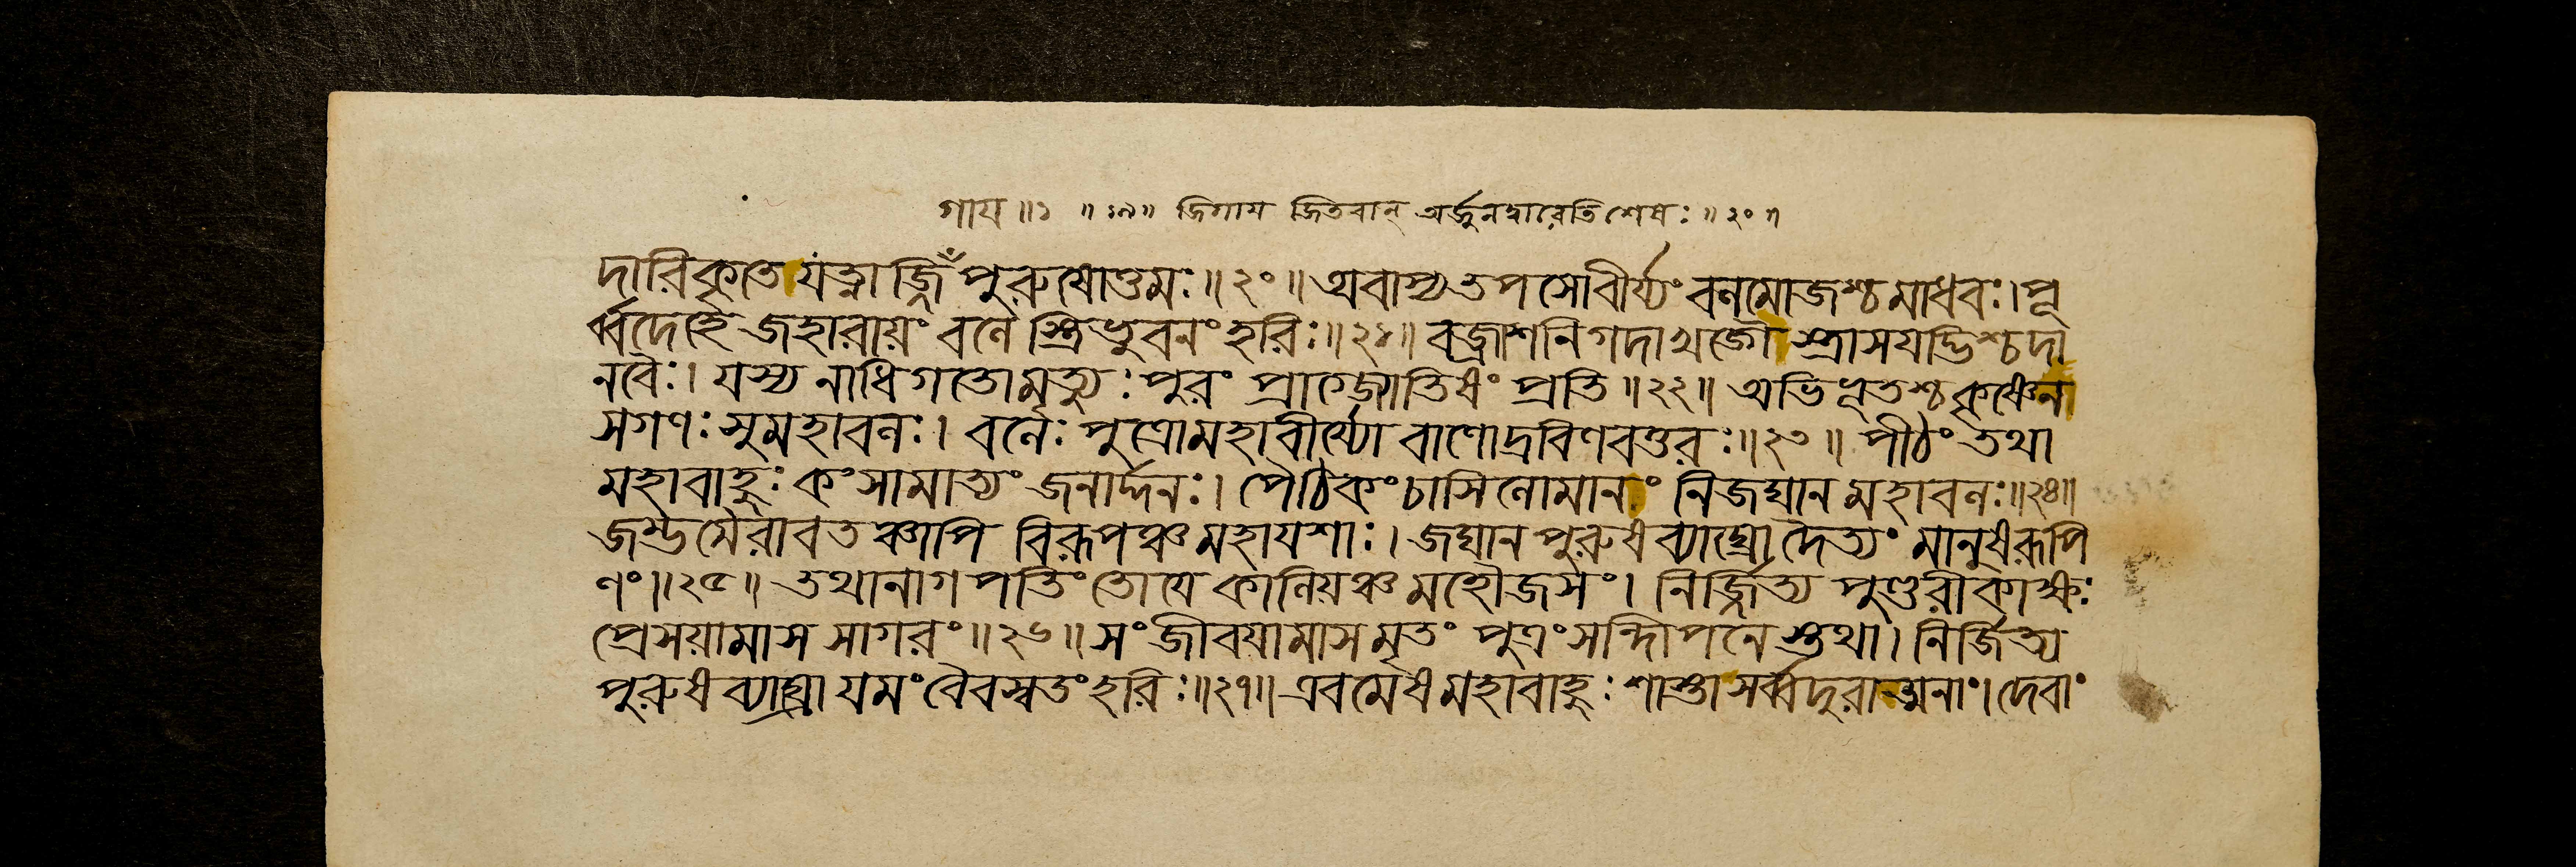 গায ॥১ ॥১৯॥ জিগায জিতবান্ অর্জুনদ্বারেতিশেষঃ ॥২০॥
দারিকৃতে যত্না জ্জিঁ পুরুষোত্তমঃ ॥২০॥ অবাপ্য তপসো বীর্য্যং বলমোজশ্চ মাধবঃ। পূ
র্ব্বদেহে জহারায়ং বলে স্ত্রিভুবনং হরিঃ ॥২১॥ বজ্রাশনি গদাখড়্গৈ স্ত্রাসযদ্ভিশ্চ দা
নবৈঃ। যস্য নাধিগতো মৃত্যুঃ পুরং প্রাগ্জ্যোতিষং প্রতি ॥২২॥ অভিভূতশ্চ কৃষ্ণেন
সগণঃ সুমহাবলঃ। বলেঃ পুত্রো মহাবীর্য্যো বাণো দ্রবিণবত্তরঃ ॥২৩॥ পীঠং তথা
মহাবাহুঃ কংসামাত্যং জনার্দ্দনঃ। পৈঠিকং চাসিলোমানং নিজঘান মহাবলঃ ॥২৪॥
জম্ভমৈরাবতঞ্চাপি বিরূপঞ্চ মহাযশাঃ। জঘান পুরুষব্যাঘ্রো দৈত্যং মানুষরূপি
ণং ॥২৫॥ তথা নাগপতিং তোযে কালিয়ঞ্চ মহৌজসং। নির্জ্জিত্য পুণ্ডরীকাক্ষঃ
প্রেসয়ামাস সাগরং ॥২৬॥ সংজীবযামাস মৃতং পুত্রং সন্দিপনে স্তথা। নির্জিত্য
পুরুষব্যাঘ্রো যমং বৈবস্বতং হরিঃ ॥২৭॥ এবমেষ মহাবাহুঃ শাস্তা সর্ব্বদুরাত্মনাং। দেবাং